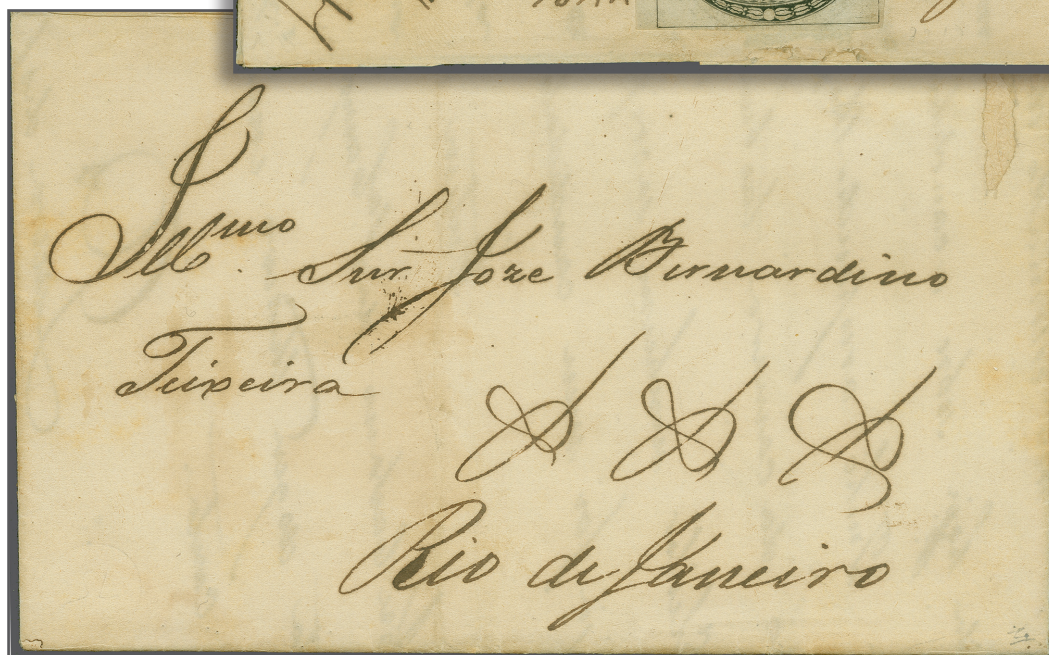 Illmo. Snr. Joze Bernardino
Teixeira
Rio de Janeiro